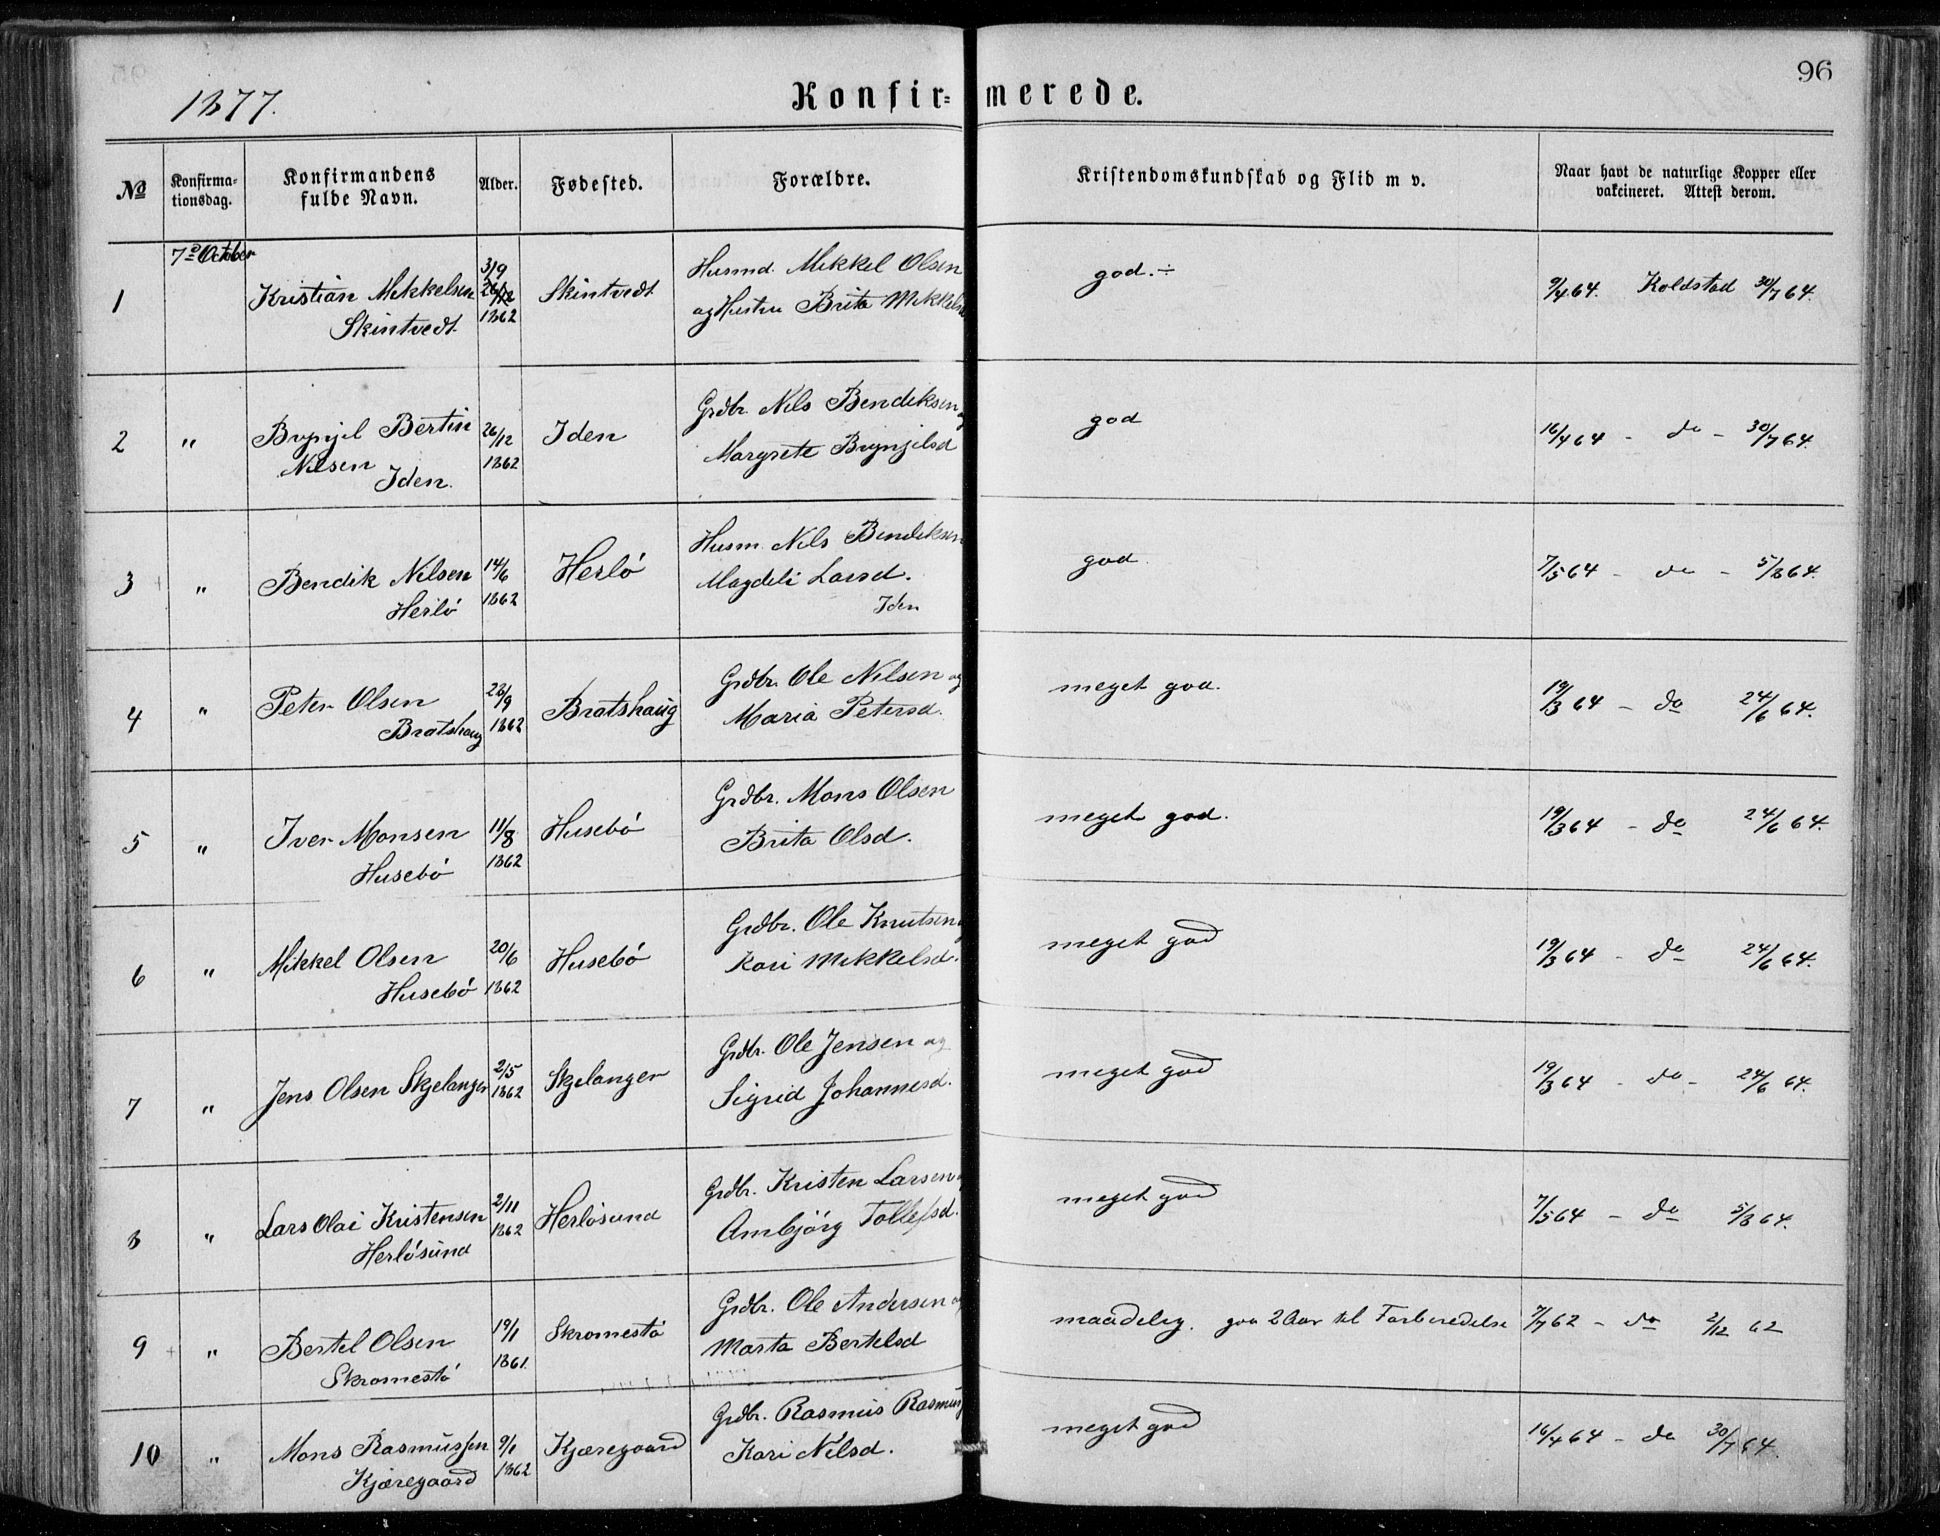 96
1877.
Konfir= merede.
No
Konfirma-
tionsdag.
Konfirmandens
fulde Navn.
Alder.
Fødested.
Forældre.
Kristendomskundskab og Flid m v.
Naar havt de naturlige Kopper eller
vakcineret. Attest derom.
1
7de October
Kristian Mikkelsen
Skintvedt
3/9
26/12
1862
Skintvedt
Husmd. Mikkel Olsen
og Hustru Brita Mikkelsd
god. ÷
9/4 64. Koldstad 30/7 64.
2
"
Brynjel Bertin
Nilsen
Iden.
26/12
1862
Iden
Grdbr. Nils Bendiksen og
Margrete Brynjelsd
god
16/4 64 - do - 30/7 64.
3
"
Bendik Nilsen
Herlö
14/6
1862
Herlö
Husm. Nils Bendiksen
Magdeli Larsd.
Iden
god.
7/5 64 - do - 5/8 64.
4
"
Peter Olsen
Bratshaug
28/9
1862
Bratshaug
Grdbr. Ole Nilsen og
Maria Petersd.
meget god.
19/3 64 - do 24/6 64.
5
"
Iver Monsen
Husebö
11/8
1862
Husebö
Grdbr. Mons Olsen
Brita Olsd.
meget god.
19/3 64 - do 24/6 64.
6
"
Mikkel Olsen
Husebö
20/6
1862
Husebö
Grdbr. Ole Knutsen
Kari Mikkelsd.
meget god
19/3 64 - do 24/6 64.
7
"
Jens Olsen Skjelanger
2/5
1862
Skjelanger
Grdbr. Ole Jensen og
Sigrid Johannesd.
meget god
19/3 64 - do - 24/6 64.
8
"
Lars Olai Kristensen
Herlösund
2/11
1862
Herlösund
Grdbr. Kristen Larsen
Ambjörg Tollefsd.
meget god
7/5 64 - do 5/8 64.
9
"
Bertel Olsen
Skromestö
19/1
1861.
Skromestö
Grdbr. Ole Andersen og
Marta Bertelsd
maadelig. gaa 2 Aar til Forberedelse
7/7 62 - do 2/12 62
10
"
Mons Rasmussen
Kjæregaard
9/1
1862
Kjæregaard
Grdbr. Rasmus Rasmus
Kari Nilsd.
meget god
16/4 64 - do 30/7 64.